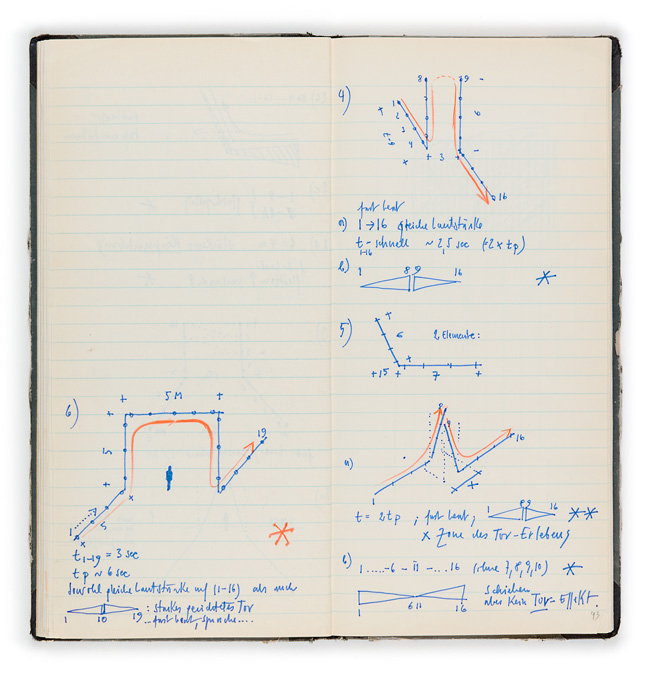 6)
+ 5 M +
+ 5
+
19
1
5
x
x
t1-19 = 3 sec
tp ~ 6 sec
sowohl gleiche Lautstärke auf (1-16) als auch
1 10 19 : starkes gerichtetes Tor
... fast beat, Sprache....
4)
8 9
1
2
3
4
+ 3 +
6
16
fast beat
a) 1 → 16 gleiche Lautstärke
t1-16 - schnell ~ 2,5 sec (÷2 x tp)
b) 1 8 9 16
5)
+
6
2 Elemente:
+
+15 + 7 +
a)
8
9
16
1
t = 2tp ; fast beat ; 1 8 9 16
x Zone des Tor-Erlebens
b) 1 .....-6 - 11 - ...16 (ohne 7, 8, 9, 10)
1 6 11 16
Schieben
aber kein Tor-Effekt.
43